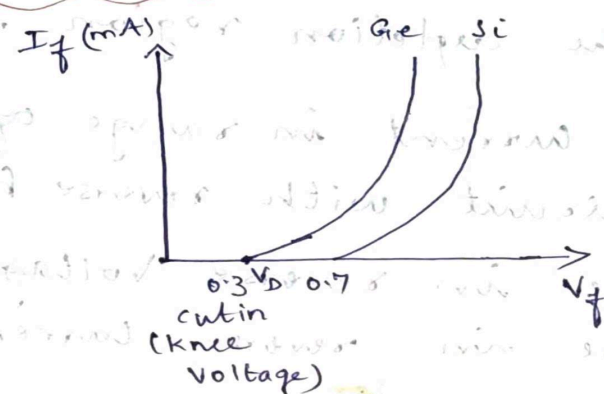 If (mA)
Ge Si
0.3 VD 0.7
Vf
cutin
(knee
voltage)